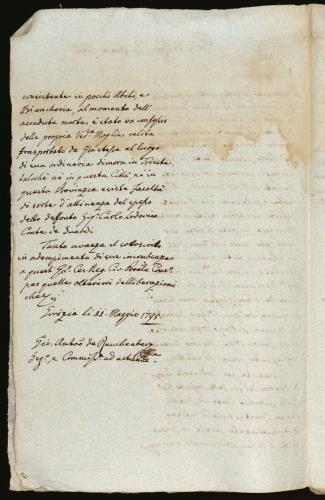 consistente in pochi Abiti, e
Biancheria, al momento dell'
accaduta morte, è stato ex consiglio
della propria Ved.a Moglie relita
trasportato da essa al luogo
di sua ordinaria dimora in Trieste,
talché nè in questa Città nè in
questa Provincia esiste facoltà
di sorte d'attinenza del
detto defonto Sig.r Carlo Lodovico
Conte de
Tanto avanza il sottoscritto
in adempimento di sue incombenze
a quest' Ces. Reg. Civ.
per quelle ulteriori deliberazioni
che
Gorizia li 22. Maggio 1795.
Gio. Anton de
Seg.o e Commiss.o ad